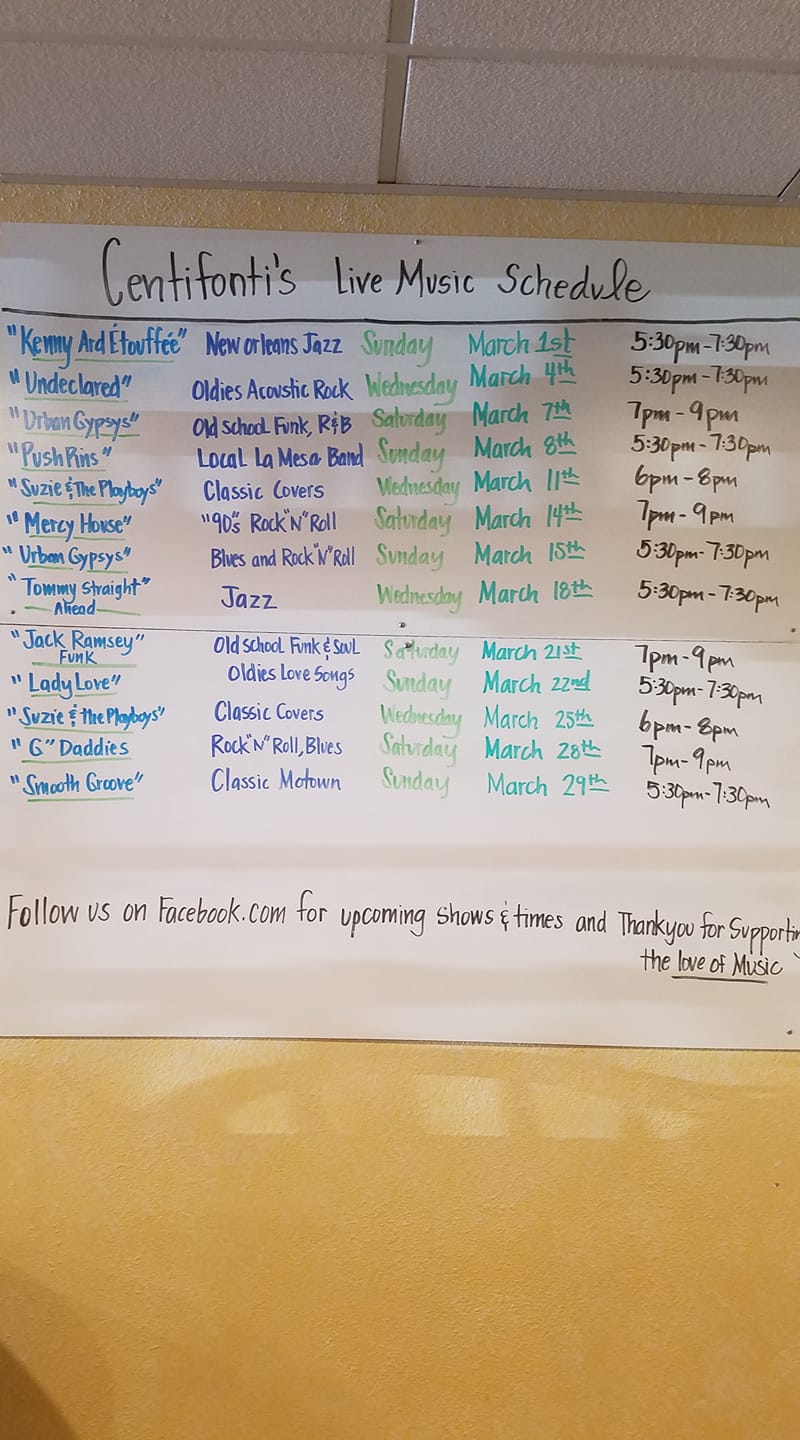 Centifonti's Live Music Schedule
"Kenny Ard Étouffée" New orleans Jazz Sunday March 1st 5:30pm-7:30pm
"Undeclared" Oldies Acoustic Rock Wednesday March 4th 5:30pm-7:30pm
"Urban Gypsys" Old School Funk, R&B Saturday March 7th 7pm-9pm
"Push Pins" Local La Mesa Band Sunday March 8th 5:30pm-7:30pm
"Suzie & The Playboys" Classic Covers Wednesday March 11th 6pm-8pm
"Mercy House" "90's Rock "N" Roll Saturday March 14th 7pm-9pm
"Urban Gypsys" Blues and Rock "N" Roll Sunday March 15th 5:30pm-7:30pm
"Tommy Straight" Jazz Wednesday March 18th 5:30pm-7:30pm
Ahead
"Jack Ramsey" Old School Funk & Soul Saturday March 21st 7pm-9pm
Funk
"Lady Love" Oldies Love Songs Sunday March 22nd 5:30pm-7:30pm
"Suzie & the Playboys" Classic Covers Wednesday March 25th 6pm-8pm
"G" Daddies Rock "N" Roll, Blues Saturday March 28th 7pm-9pm
"Smooth Groove" Classic Motown Sunday March 29th 5:30pm-7:30pm
Follow us on Facebook.com for upcoming shows & times and Thankyou for Supportin
the love of Music